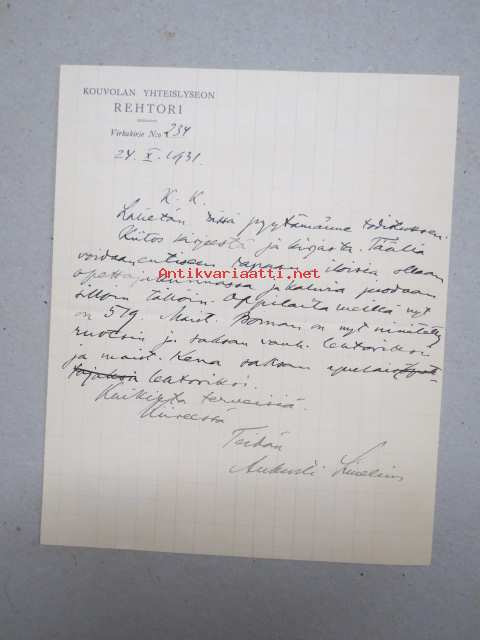 KOUVOLAN YHTEISLYSEON
REHTORI
Virkakirje N:o 234
24. X. 1931.
K. K.
Lähetän tässä pyytämänne todistuksen.
Kiitos kirjeestä ja kirjasta. Täällä
voidaan entiseen tapaan, iloisia ollaan
opettajakunnassa ja kahvia juodaan
silloin tällöin. Oppilaita meillä nyt
on 519. Maist. Boman on nyt nimitetty
ruotsin ja saksan vanh. lehtoriksi
ja maist. Kena saksan
lehtoriksi.
terveisiä.
Kiireessä
Teidän
Aukusti Linelius
Antikvariaatti.net